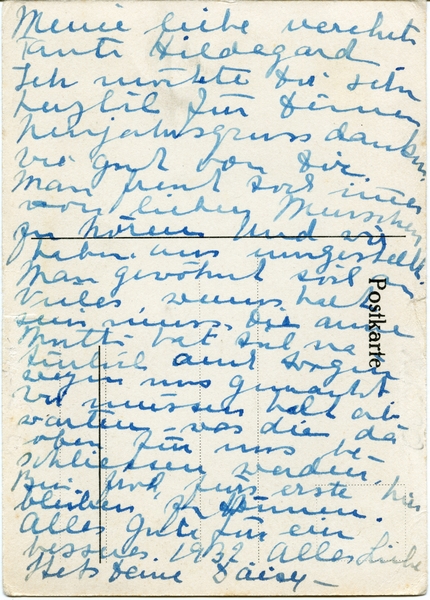 Meine liebe verehrte
Tante Hildegard
Ich möchte Dir sehr
herzlich für Deinen
Neujahrsgruss danken,
wie gut von Dir.
Man freut sich immer
von lieben Menschen
zu hören. Und wir
haben uns umgestellt.
Man gewöhnt sich an
Vieles wenns halt
sein muss. Die arme
Mutti hat sich na-
türlich amt
wegen uns gemacht
wir müssen halt ab-
warten was die da
oben für uns be-
schliessen werden.
Bin froh, fürs erste hier
bleiben zu können.
Alles Gute für ein
besseres 1932 Alles Liebe
Stets Deine Daisy –
Postkarte